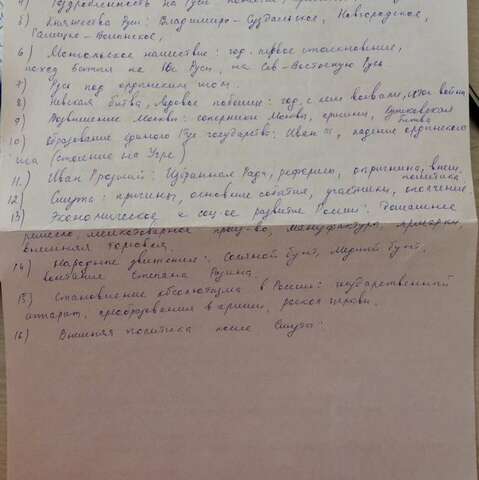 4) Раздробленность на Руси
5) Княжества Руси: Владимиро-Суздальское, Новгородское,
Галицко-Волынское,
6) Монгольское нашествие: год, первое столкновение,
поход Батыя на Юг Руси, на Сев-Восточную Русь
7) Русь под ордынским игом.
8) Невская битва, Ледовое побоище: год, с кем воевали, итог войны
9) Возвышение Москвы: соперники Москвы, причины, Куликовская
битва
10) Образование единого гос государства: Иван III, падение ордынского
ига (стояние на Угре)
11) Иван Грозный: Избранная Рада, реформы, опричнина, внеш.
политика
12) Смута: причины, основные события, участники, ополчение
13) Экономическое и соц-ое развитие России: Домашнее
ремесло, мелкотоварное произ-во, мануфактура, ярмарки,
внешняя торговля.
14) Народные движения: Соляной бунт, Медный бунт,
восстание Степана Разина.
15) Становление абсолютизма в России: государственный
аппарат, преобразования в армии, раскол церкви.
16) Внешняя политика после Смуты: